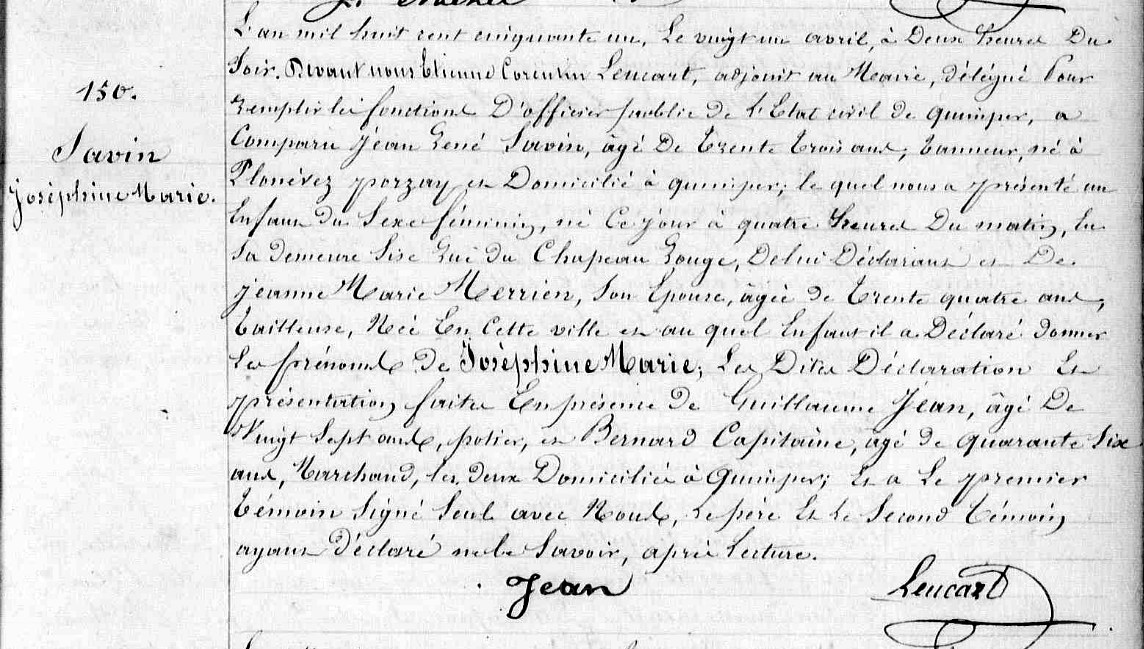 150.
Savin
Joséphine Marie.
L'an mil huit cent cinquante un, Le vingt un avril, à Deux heures Du
Soir. Devant nous Etienne Corentin Leucart, adjoint au Maire, délégué Pour
remplir les fonctions D'officier public de L'Etat civil de quimper, a
Comparu Jean René Savin, âgé De trente trois ans, tanneur, né à
Plonévez porzay et Domicilié à quimper; le quel nous a présenté un
Enfant du Sexe féminin, né Ce jour à quatre heures Du matin, En
Sa demeure Sise Rue du Chapeau Rouge, De lui Déclarant et De
jeanne Marie Merrien, Son Epouse, âgée de trente quatre ans,
tailleuse, Née En Cette ville et au quel Enfant il a Déclaré donner
Les prénoms de Joséphine Marie; Les Dites Déclaration Et
présentation faites En présence de Guillaume Jean, âgé De
Vingt Sept ans, potier, et Bernard Capitaine, agé de quarante Six
ans, Marchand, les deux Domiciliés à Quimper; Et a Le premier
témoin Signé Seul avec Nous, Le père Et Le Second témoin
ayant Déclaré ne le Savoir, après lecture.
Jean
Leucart